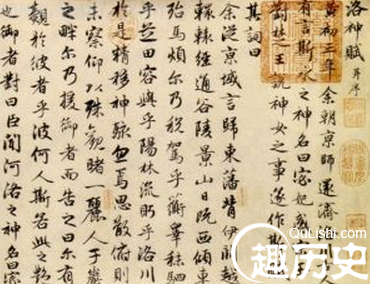 洛神賦 并序
黃初三年余朝京師還濟人
有言斯水之神名曰宓妃感王
對楚王說神女之事遂作斯
其詞曰
余從京域言歸東藩背伊闕越
轘轅經通谷陵景山日既西傾車
殆馬煩爾乃稅駕乎蘅皋秣駟
乎芝田容與乎陽林流眄乎洛川
於是精移神駭忽焉思散俯則
未察仰以殊觀睹一麗人于巖
之畔爾乃援御者而告之曰爾有
覿於彼者乎彼何人斯若此之艷
也御者對曰臣聞河洛之神名曰宓
趣历史
QuLiShi.com